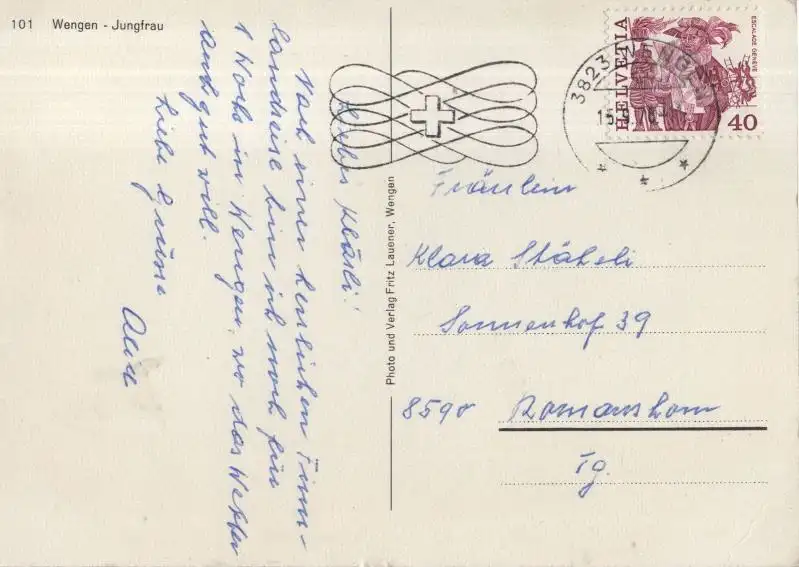 101 Wengen - Jungfrau
Liebes Klärli!
Nach einer herrlichen Finn-
landreise bin ich noch für
1 Woche in Wengen, wo das Wetter
auch gut will.
Liebe Grüsse
Alice
Photo und Verlag Fritz Lauener, Wengen
ESCALADE GENÈVE
HELVETIA
40
3823 WENGEN
15.9.78
Fräulein
Klara Stäheli
Sonnenhof 39
8590 Romanshorn
Tg.